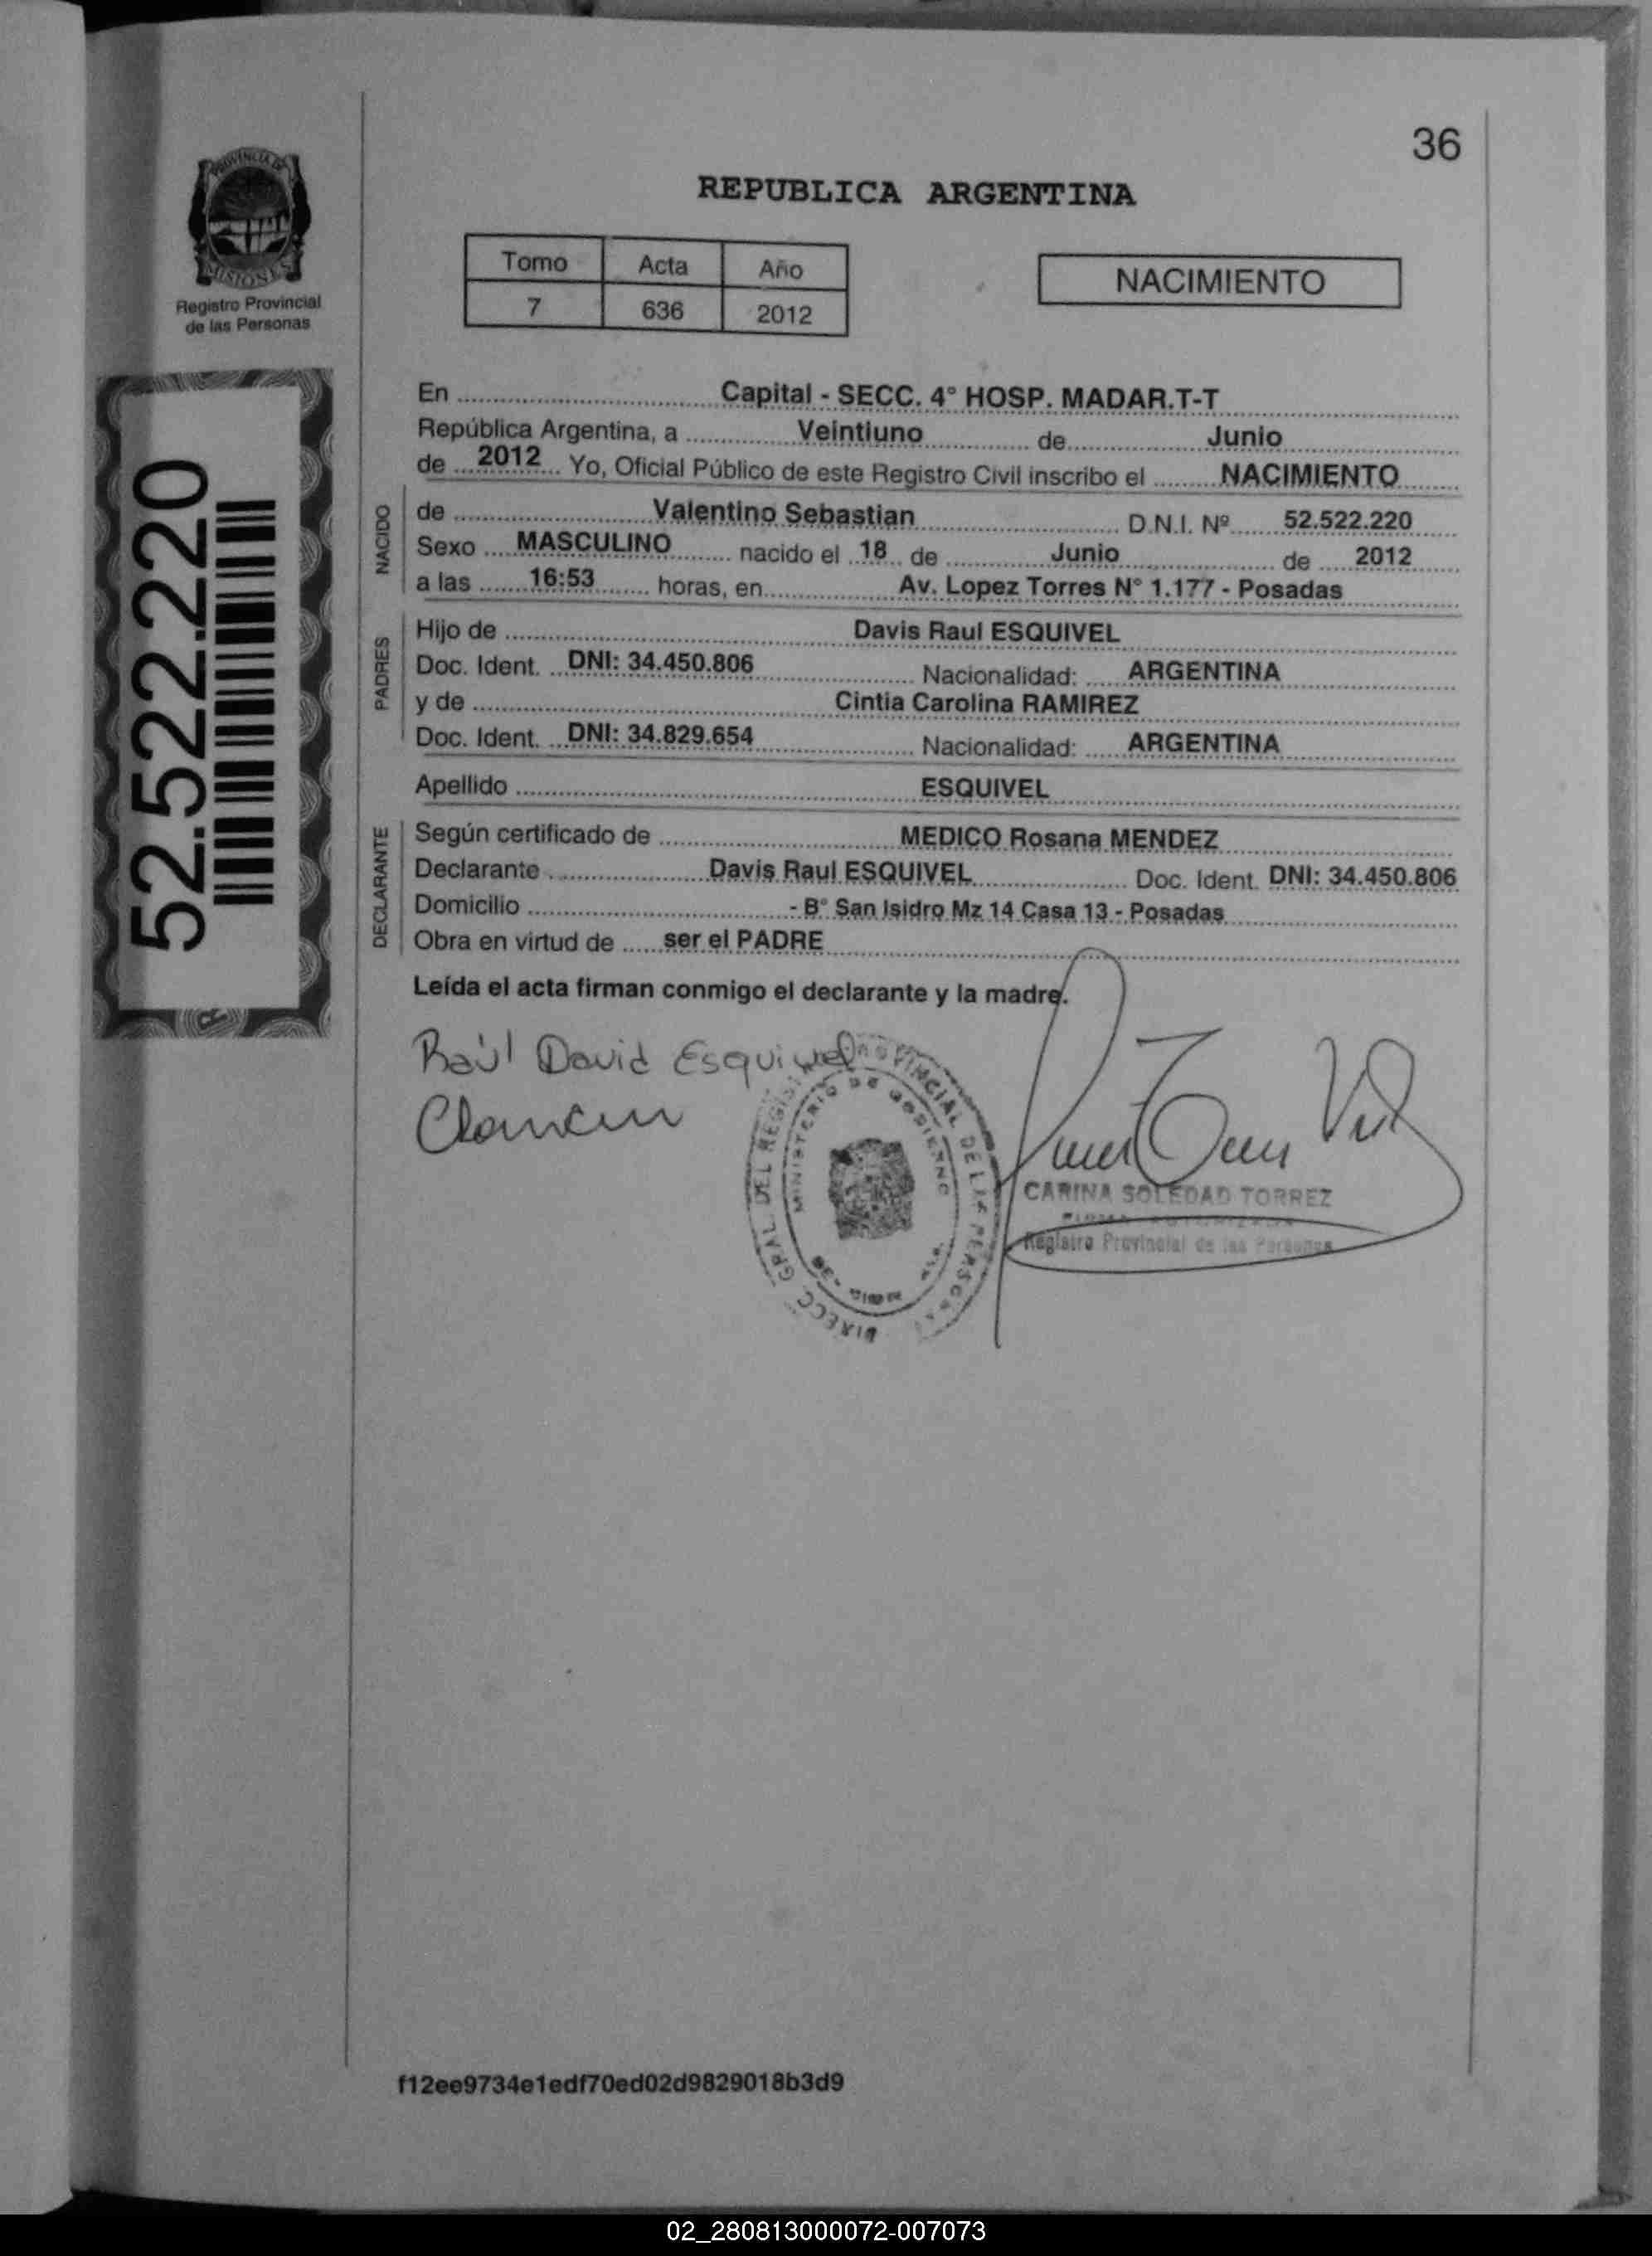 36
PROVINCIA DE
MISIONES
Registro Provincial
de las Personas
REPUBLICA ARGENTINA
Tomo Acta Año
7 636 2012
NACIMIENTO
52.522.220
En Capital - SECC. 4° HOSP. MADAR.T-T
República Argentina, a Veintiuno de Junio
de 2012 Yo, Oficial Público de este Registro Civil inscribo el NACIMIENTO
NACIDO
de Valentino Sebastian D.N.I. Nº 52.522.220
Sexo MASCULINO nacido el 18 de Junio de 2012
a las 16:53 horas, en Av. Lopez Torres N° 1.177 - Posadas
PADRES
Hijo de Davis Raul ESQUIVEL
Doc. Ident. DNI: 34.450.806 Nacionalidad: ARGENTINA
y de Cintia Carolina RAMIREZ
Doc. Ident. DNI: 34.829.654 Nacionalidad: ARGENTINA
Apellido ESQUIVEL
DECLARANTE
Según certificado de MEDICO Rosana MENDEZ
Declarante Davis Raul ESQUIVEL Doc. Ident. DNI: 34.450.806
Domicilio - B° San Isidro Mz 14 Casa 13 - Posadas
Obra en virtud de ser el PADRE
Leída el acta firman conmigo el declarante y la madre.
Raúl David Esquivel
DIRECC. GRAL. DEL REGISTRO PROVINCIAL DE LAS PERSONAS
MINISTERIO DE GOBIERNO
CARINA SOLEDAD TORREZ
Registro Provincial de las Personas
f12ee9734e1edf70ed02d9829018b3d9
02_280813000072-007073